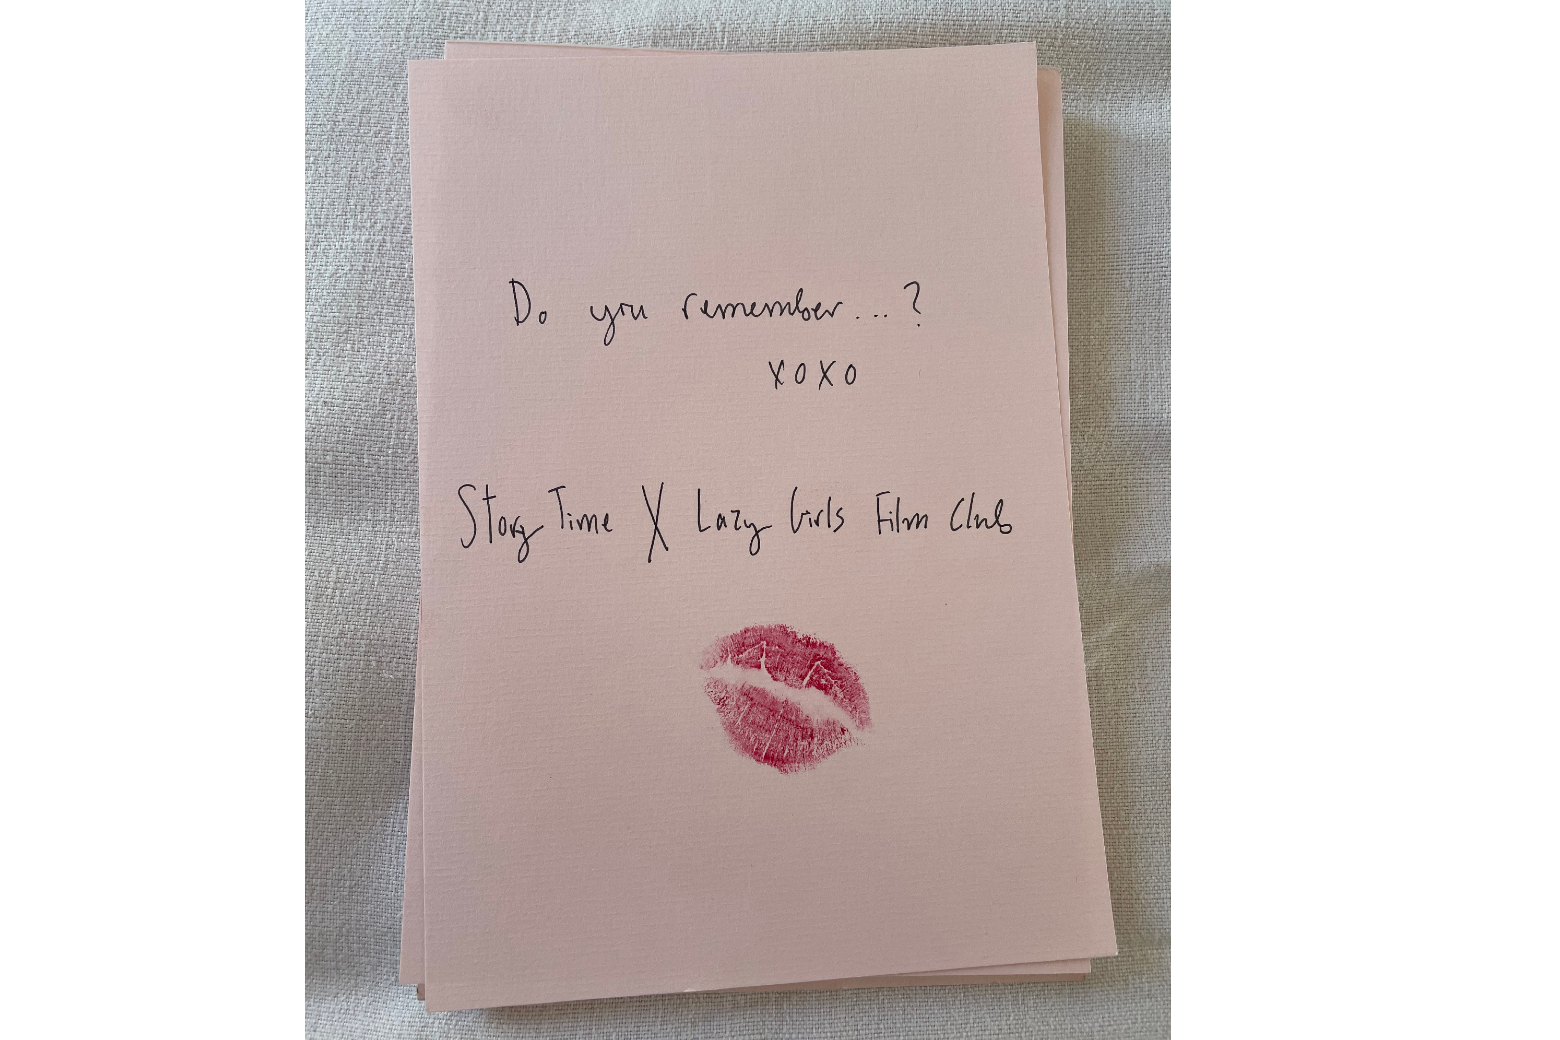 Do you remember...?
xoxo
Story Time X Lazy Girls Film Club